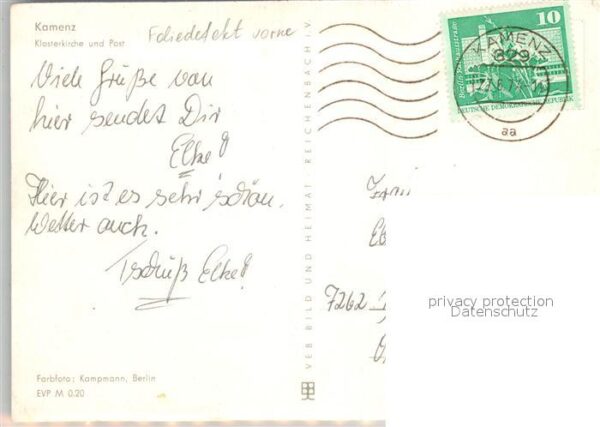 Kamenz
Klosterkirche und Post
Foliedefekt vorne
Viele Grüße von
hier sendet Dir
Elke!
Hier ist es sehr schön.
Wetter auch.
Tschüß Elke!
Farbfoto: Kampmann, Berlin
EVP M 0.20
VEB BILD UND HEIMAT REICHENBACH I. V.
10
DEUTSCHE DEMOKRATISCHE REPUBLIK
KAMENZ
829
aa
7262
privacy protection
Datenschutz